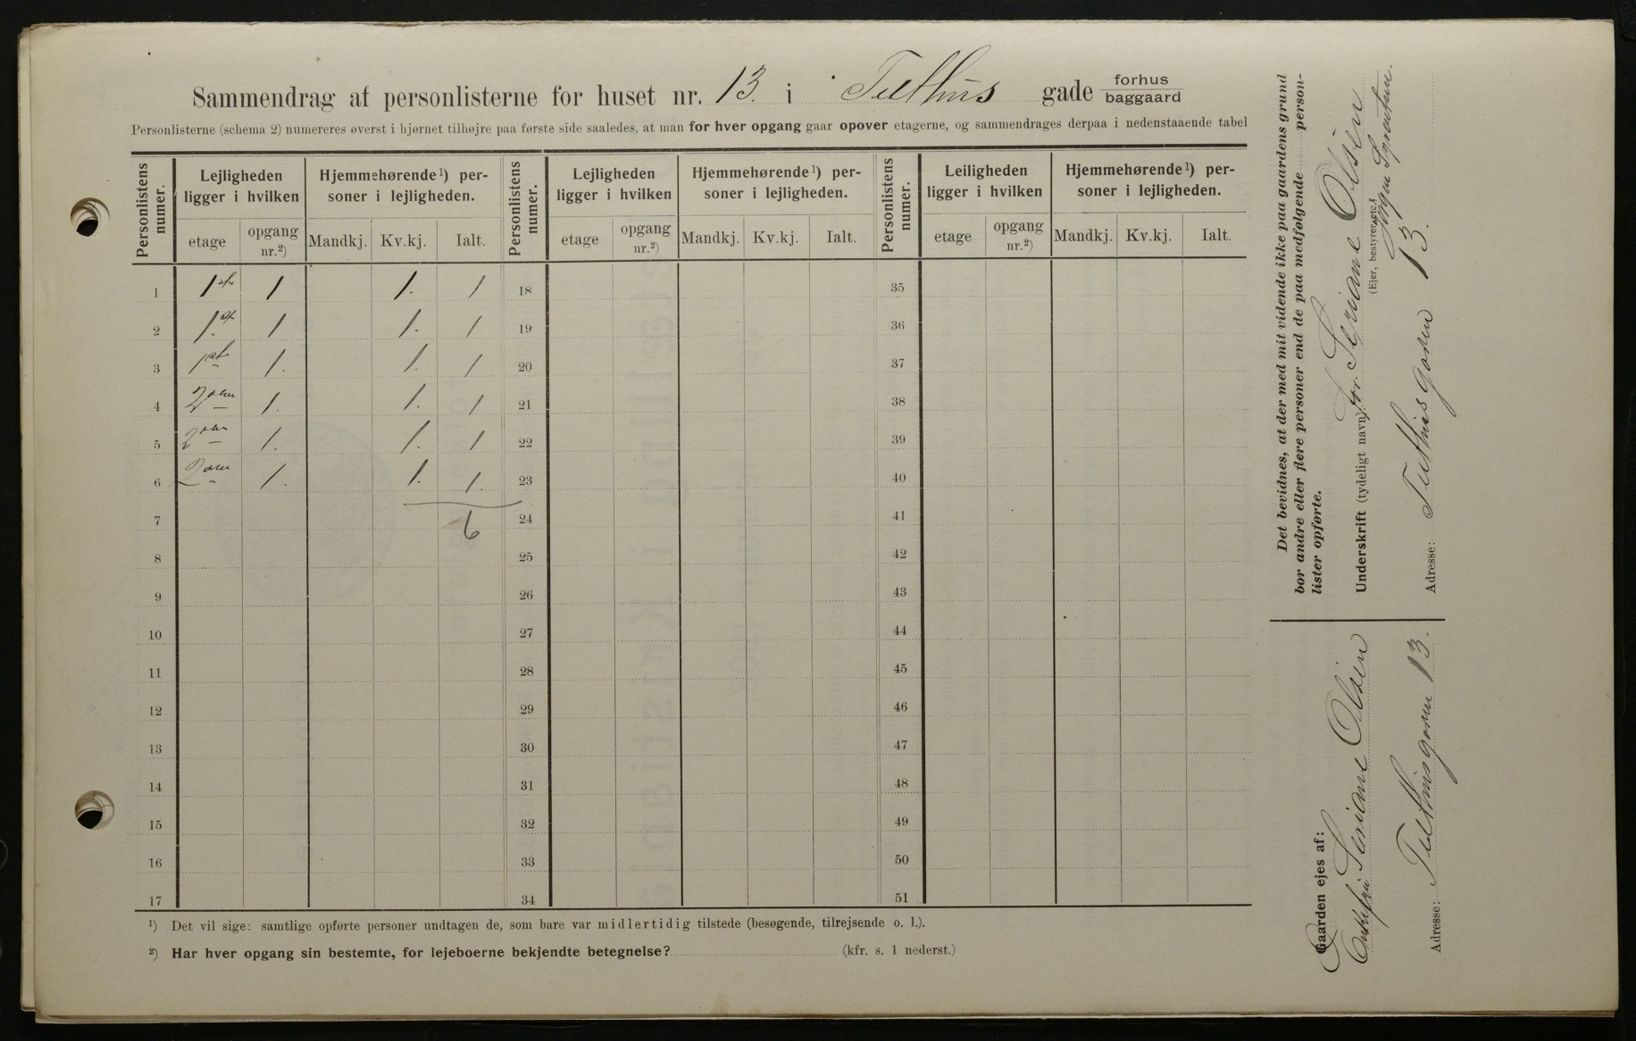 Sammendrag af personlisterne for huset nr. 13. i Tulthus gade forhus baggaard
Personlisterne (schema 2) numereres øverst i hjørnet tilhøjre paa første side saaledes, at man for hver opgang gaar opover etagerne, og sammendrages derpaa i nedenstaaende tabel
Personlistens numer. Lejligheden ligger i hvilken Hjemmehørende¹) personer i lejligheden. Personlistens numer. Lejligheden ligger i hvilken Hjemmehørende¹) personer i lejligheden. Personlistens numer. Leiligheden ligger i hvilken Hjemmehørende¹) personer i lejligheden.
etage opgang nr.²) Mandkj. Kv.kj. Ialt. etage opgang nr.²) Mandkj. Kv.kj. Ialt. etage opgang nr.²) Mandkj. Kv.kj. Ialt.
1 1ste 1 1. 1 18 35
2 1st 1 1. 1 19 36
3 1ste 1. 1. 1 20 37
4 2den 1. 1. 1 21 38
5 2den 1. 1. 1 22 39
6 2den 1. 1. 1. 23 40
7 6 24 41
8 25 42
9 26 43
10 27 44
11 28 45
12 29 46
13 30 47
14 31 48
15 32 49
16 33 50
17 34 51
¹) Det vil sige: samtlige opførte personer undtagen de, som bare var midlertidig tilstede (besøgende, tilrejsende o. l.).
²) Har hver opgang sin bestemte, for lejeboerne bekjendte betegnelse? (kfr. s. 1 nederst.)
Det bevidnes, at der med mit vidende ikke paa gaardens grund
bor andre eller flere personer end de paa medfølgende person-
lister opførte.
Underskrift (tydeligt navn): for Seriane Olsen
(Ejer, bestyrer etc.)
Adresse: Tulthusgaden 13.
Gaarden ejes af:
Enkefru Seriane Olsen
Adresse: Tulthusgaden 13.